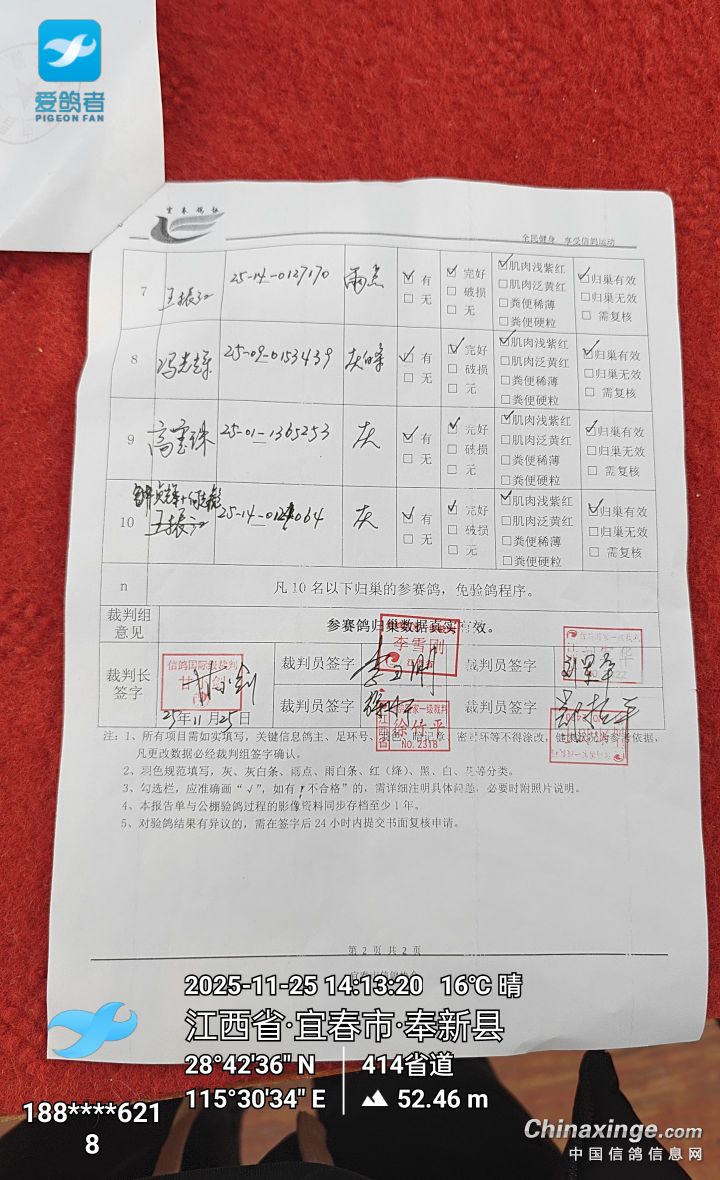 爱鸽者
PIGEON FAN
宜春鸽协
全民健身 享受信鸽运动
7 王振江 25-14-0127170 雨点 ☑有 ☑完好 ☑肌肉浅紫红 ☑归巢有效
□无 □破损 □肌肉泛黄红 □归巢无效
□无 □粪便稀薄 □需复核
□粪便硬粒
8 25-09-0153439 ☑有 ☑完好 ☑肌肉浅紫红 ☑归巢有效
□无 □破损 □肌肉泛黄红 □归巢无效
□无 □粪便稀薄 □需复核
□粪便硬粒
9 高宝珠 25-01-1365253 灰 ☑有 ☑完好 ☑肌肉浅紫红 ☑归巢有效
□无 □破损 □肌肉泛黄红 □归巢无效
□无 □粪便稀薄 □需复核
□粪便硬粒
10 王振江 25-14-0124064 灰 ☑有 ☑完好 ☑肌肉浅紫红 ☑归巢有效
□无 □破损 □肌肉泛黄红 □归巢无效
□无 □粪便稀薄 □需复核
□粪便硬粒
n 凡10名以下归巢的参赛鸽，免验鸽程序。
裁判组意见 参赛鸽归巢数据真实有效。
裁判长签字 信鸽国际级裁判 25年11月25日
裁判员签字 李雪刚 裁判员签字
裁判员签字 徐竹平 NO.2318 裁判员签字
注：1、所有项目需如实填写，关键信息鸽主、足环号、羽色、暗记章、密码环等不得涂改，健康状况为参考依据，
凡更改数据必经裁判组签字确认。
2、羽色规范填写，灰、灰白条、雨点、雨白条、红（绛）、黑、白、花等分类。
3、勾选栏，应准确画“√”，如有“不合格”的，需详细注明具体问题，必要时附照片说明。
4、本报告单与公棚验鸽过程的影像资料同步存档至少1年。
5、对验鸽结果有异议的，需在签字后24小时内提交书面复核申请。
第2页共2页
宜春市信鸽协会
2025-11-25 14:13:20 16℃ 晴
江西省·宜春市·奉新县
28°42'36" N 414省道
115°30'34" E 52.46 m
188****621
8
Chinaxinge.com
中国信鸽信息网